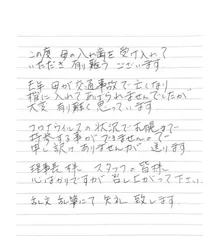 この度 母の入れ歯を受け入れて
いただき 有り難う ございます
去年 母が交通事故で亡くなり
棺に入れてあげられませんでしたが
大変 有り難く思っています
コロナウイルスの状況で札幌まで
持参する事ができませんので
申し訳ありませんが 送ります
理事長様、スタッフの皆様、
心ばかりですが 召し上がって下さい。
乱文 乱筆にて 失礼 致します